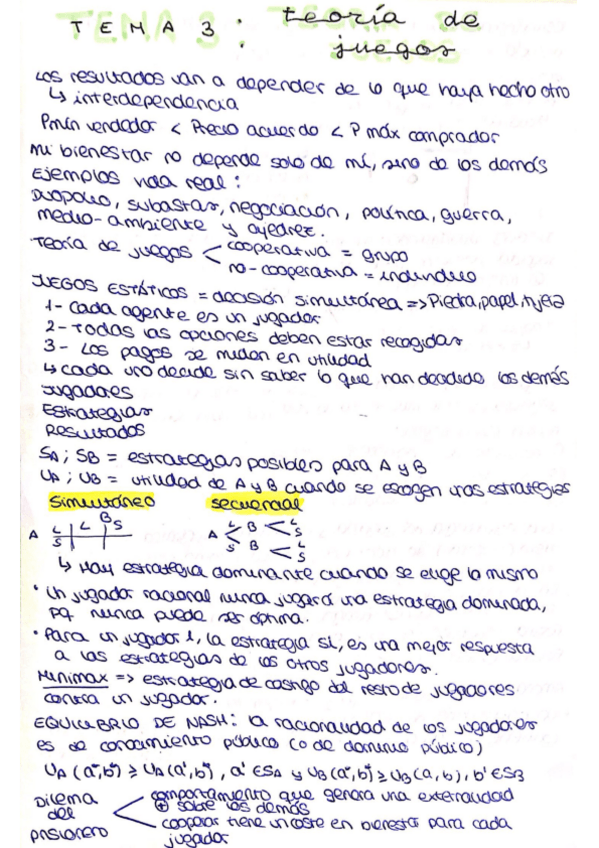 TEMA 3: teoría de
juegos
Los resultados van a depender de lo que haya hecho otro
↳ interdependencia
Pmín vendedor < Precio acuerdo < P máx comprador
mi bienestar no depende solo de mí, sino de los demás
Ejemplos vida real:
Duopolio, subastas, negociación, política, guerra,
medio-ambiente y ajedrez.
Teoría de juegos < cooperativa = grupo
no-cooperativa = individuo
JUEGOS ESTÁTICOS = decisión simultánea => Piedra, papel, tijera
1- Cada agente es un jugador
2- Todas las opciones deben estar recogidas
3- Los pagos se miden en utilidad
↳ cada uno decide sin saber lo que han decidido los demás
Jugadores
Estrategias
Resultados
SA; SB = estrategias posibles para A y B
UA; UB = utilidad de A y B cuando se escogen unas estrategias
simultáneo secuencial
B
L S
A L
S
A < L B < L S
S B < L S
↳ Hay estrategia dominante cuando se elige lo mismo
· Un jugador racional nunca jugará una estrategia dominada,
pq nunca puede ser óptima.
· Para un jugador i, la estrategia si, es una mejor respuesta
a las estrategias de los otros jugadores.
Minimax => estrategia de castigo del resto de jugadores
contra un jugador.
EQUILIBRIO DE NASH: la racionalidad de los jugadores
es de conocimiento público (o de dominio público)
UA (a*,b*) ≥ UA (a',b*), a' ∈ SA y UB (a*,b*) ≥ UB (a,b), b' ∈ SB
Dilema del prisionero < comportamiento que genera una externalidad
⊕ sobre los demás
cooperar tiene un coste en bienestar para cada
jugador